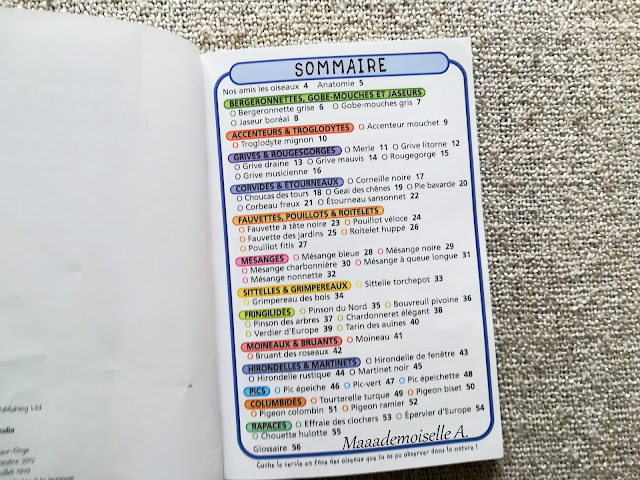 SOMMAIRE
Nos amis les oiseaux 4 Anatomie 5
BERGERONNETTES, GOBE-MOUCHES ET JASEURS
Bergeronnette grise 6 Gobe-mouches gris 7
Jaseur boréal 8
ACCENTEURS & TROGLODYTES Accenteur mouchet 9
Troglodyte mignon 10
GRIVES & ROUGESGORGES Merle 11 Grive litorne 12
Grive draine 13 Grive mauvis 14 Rougegorge 15
Grive musicienne 16
CORVIDÉS & ÉTOURNEAUX Corneille noire 17
Choucas des tours 18 Geai des chênes 19 Pie bavarde 20
Corbeau freux 21 Étourneau sansonnet 22
FAUVETTES, POUILLOTS & ROITELETS
Fauvette à tête noire 23 Pouillot véloce 24
Fauvette des jardins 25 Roitelet huppé 26
Pouillot fitis 27
MÉSANGES Mésange bleue 28 Mésange noire 29
Mésange charbonnière 30 Mésange à queue longue 31
Mésange nonnette 32
SITTELLES & GRIMPEREAUX Sittelle torchepot 33
Grimpereau des bois 34
FRINGILIDÉS Pinson du Nord 35 Bouvreuil pivoine 36
Pinson des arbres 37 Chardonneret élégant 38
Verdier d'Europe 39 Tarin des aulnes 40
MOINEAUX & BRUANTS Moineau 41
Bruant des roseaux 42
HIRONDELLES & MARTINETS Hirondelle de fenêtre 43
Hirondelle rustique 44 Martinet noir 45
PICS Pic épeiche 46 Pic-vert 47 Pic épeichette 48
COLUMBIDÉS Tourterelle turque 49 Pigeon biset 50
Pigeon colombin 51 Pigeon ramier 52
RAPACES Effraie des clochers 53 Épervier d'Europe 54
Chouette hulotte 55
Glossaire 56
Maaademoiselle A.
Coche le cercle en face des oiseaux que tu as pu observer dans la nature !
Publishing Ltd